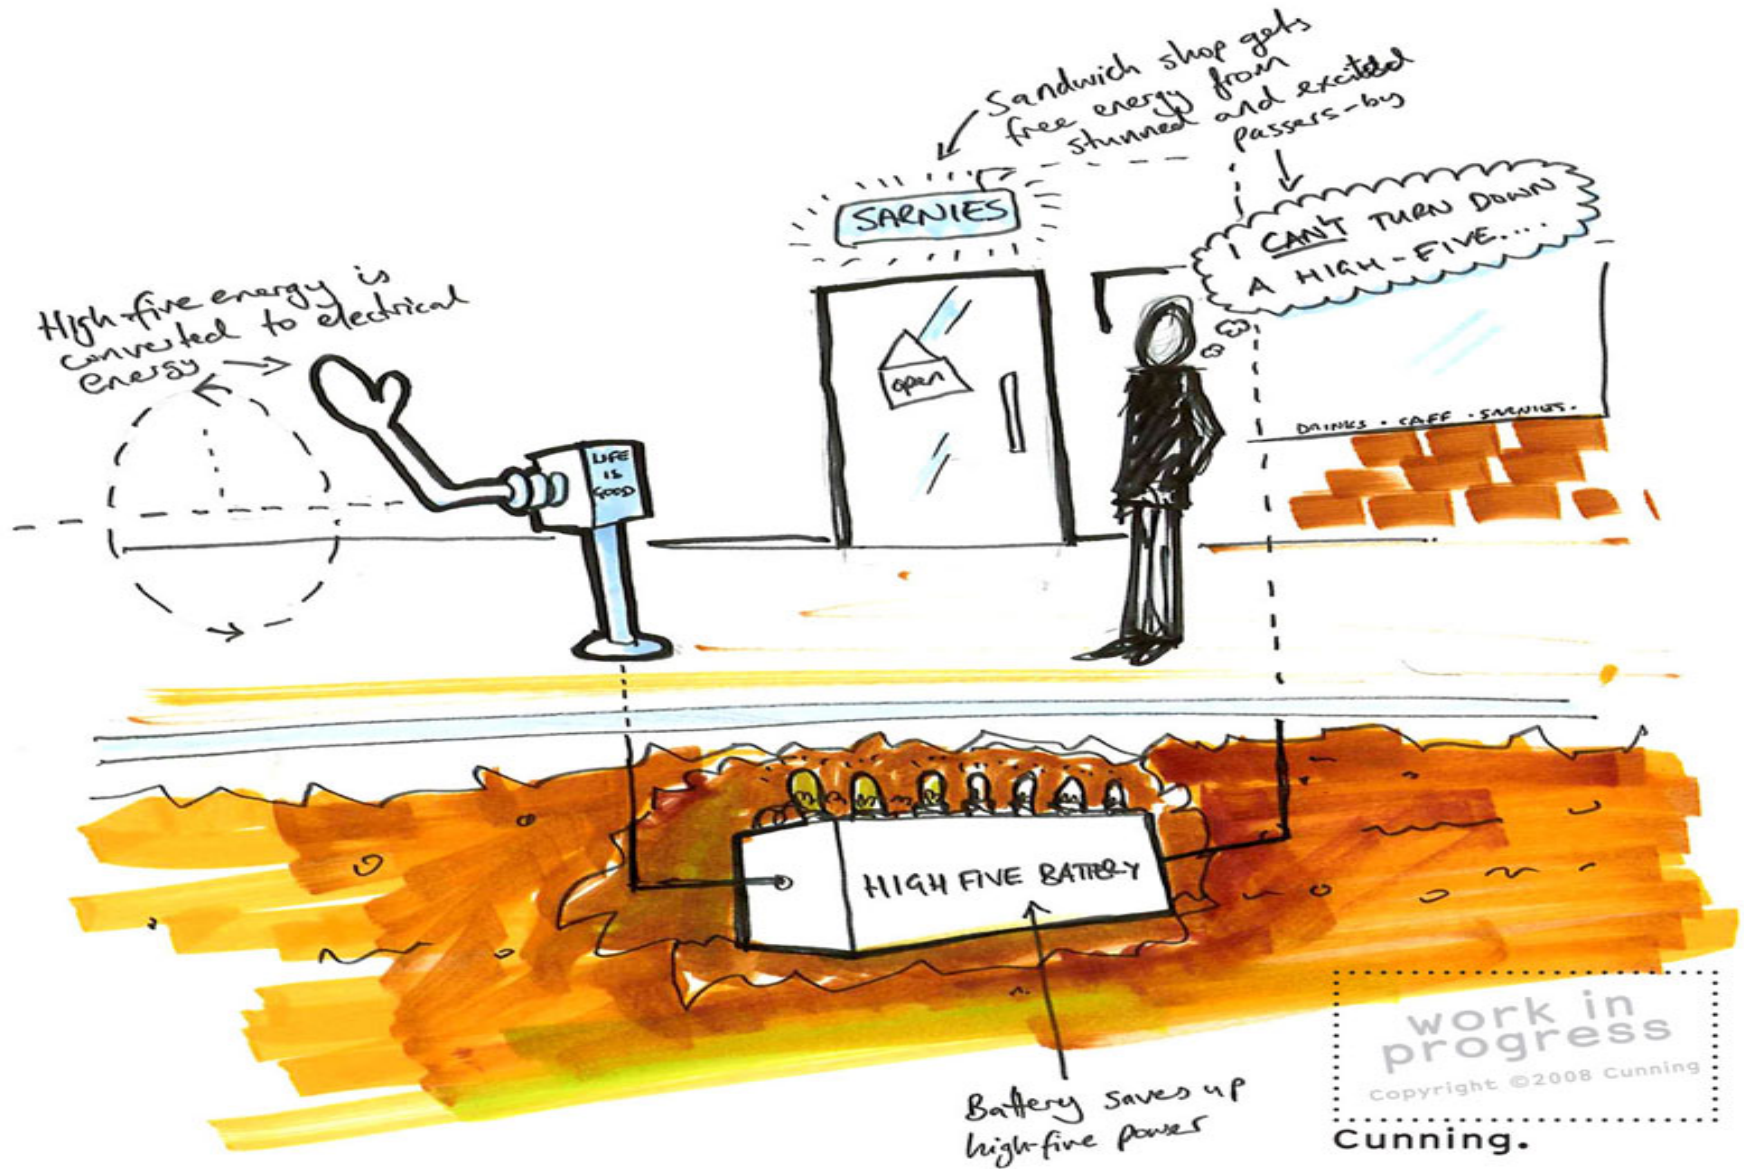 Sandwich shop gets
free energy from
stunned and excited
passers-by
SARNIES
I CAN'T TURN DOWN
A HIGH-FIVE....
High-five energy is
converted to electrical
energy
open
LIFE
IS
GOOD
DRINKS · CAFF · SARNIES ·
HIGH FIVE BATTERY
Battery saves up
high-five power
work in
progress
Copyright ©2008 Cunning
Cunning.